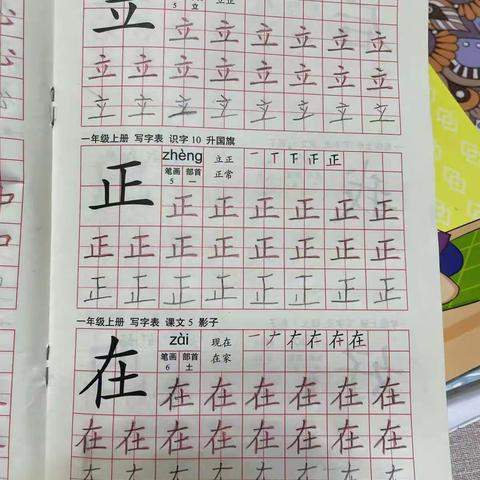 立 笔画 部首 立正
5 立
立 立 立 立 立 立
立 立 立 立 立 立 立 立
立 立 立 立 立 立 立 立
一年级上册 写字表 识字 10 升国旗
正 zhèng 立正 一 丅 下 正 正
笔画 部首 正常
5 一
正 正 正 正 正 正
正 正 正 正 正 正 正 正
正 正 正 正 正 正 正 正
一年级上册 写字表 课文 5 影子
在 zài 现在 一 𠂇 在 在 在
笔画 部首 在家
6 土
在 在 在 在 在 在
在 在 在 在 在 在 在 在